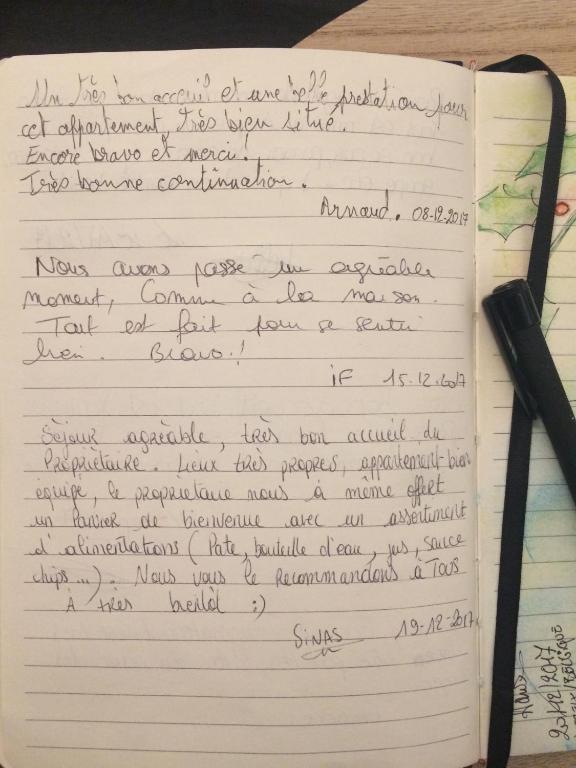 Un très bon accueil et une belle prestation pour
cet appartement, très bien situé.
Encore bravo et merci!
Très bonne continuation.
Arnaud. 08-12-2017
Nous avons passé un agréable
moment, Comme à la maison.
Tout est fait pour se sentir
bien. Bravo!
iF 15.12.2017
Séjour agréable, très bon accueil du
Propriétaire. Lieux très propres, appartement bien
équipé, le propriétaire nous à même offert
un Panier de bienvenue avec un assortiment
d'alimentations (Pate, bouteille d'eau, jus, sauce
chips...). Nous vous le recommandons à Tous
À très bientôt :)
SiNAS 19-12-2017
20/12/2017